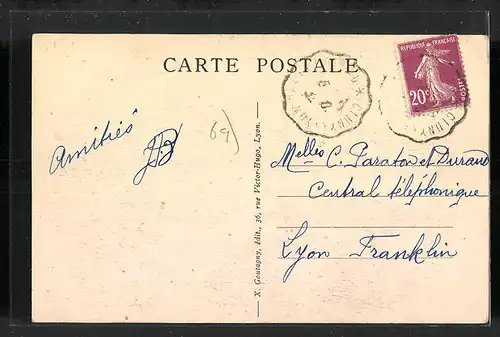 CARTE POSTALE
REPUBLIQUE FRANÇAISE
20c
POSTES
CLUNY
Amitiés
69)
Melles C. Paraton et Durand
Central téléphonique
Lyon Franklin
X. Goutagny, édit., 36, rue Victor-Hugo, Lyon.